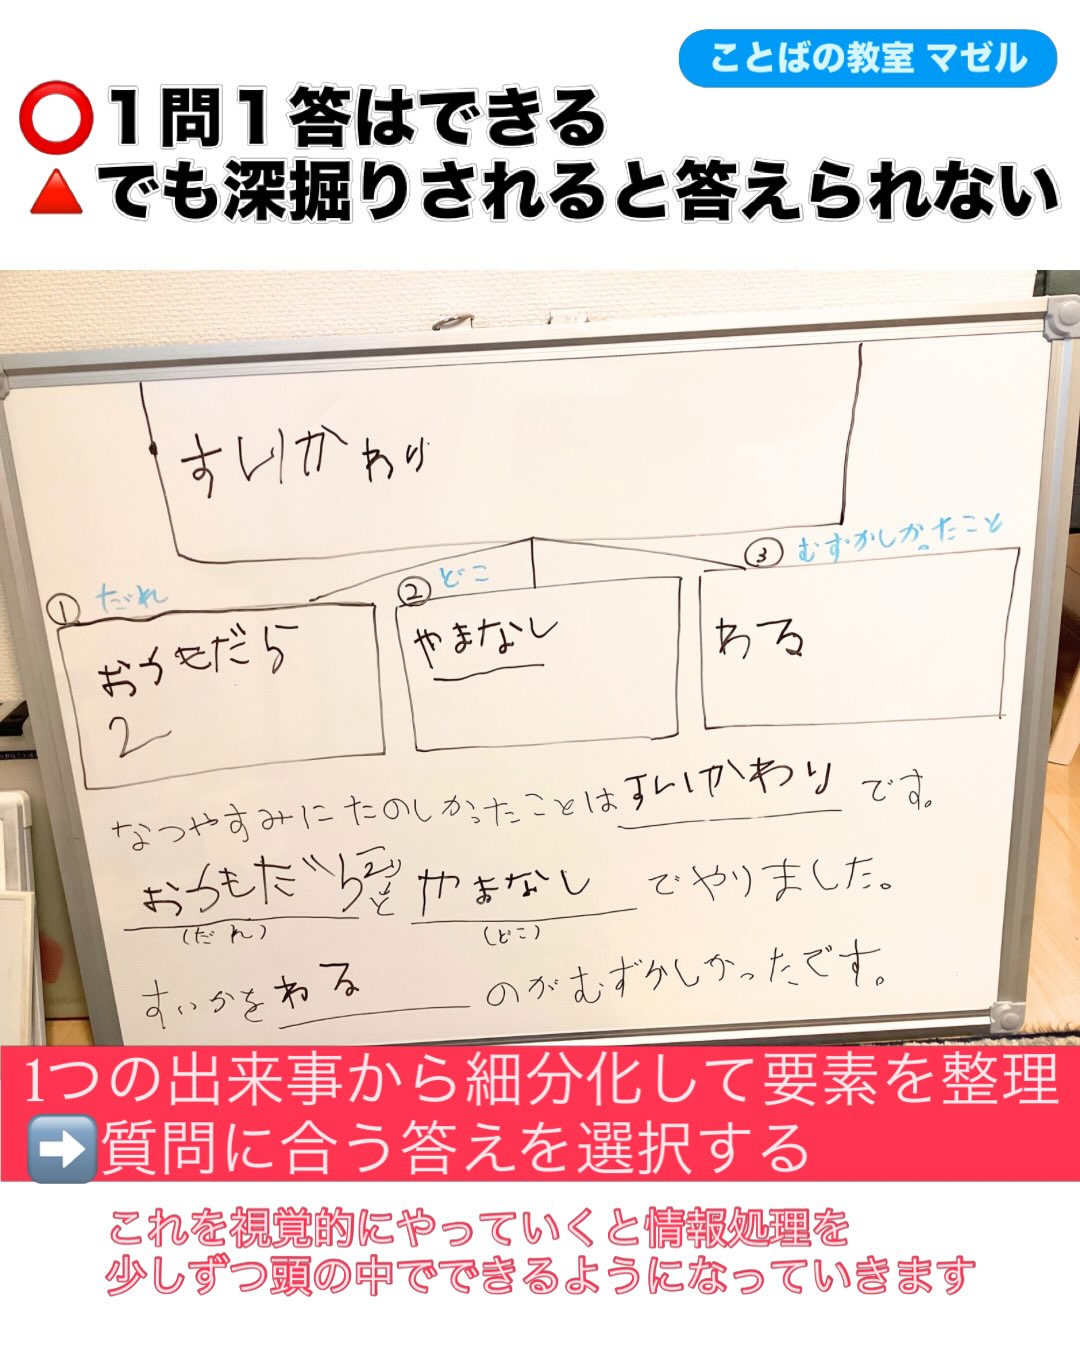 ことばの教室 マゼル
⭕1問1答はできる
🔺でも深掘りされると答えられない
すいかわり
① だれ
② どこ
③ むずかしかったこと
おともだち
2
やまなし
わる
なつやすみにたのしかったことはすいかわりです。
おともだち2りと やまなし でやりました。
(だれ) (どこ)
すいかを わる のがむずかしかったです。
1つの出来事から細分化して要素を整理
➡質問に合う答えを選択する
これを視覚的にやっていくと情報処理を
少しずつ頭の中でできるようになっていきます